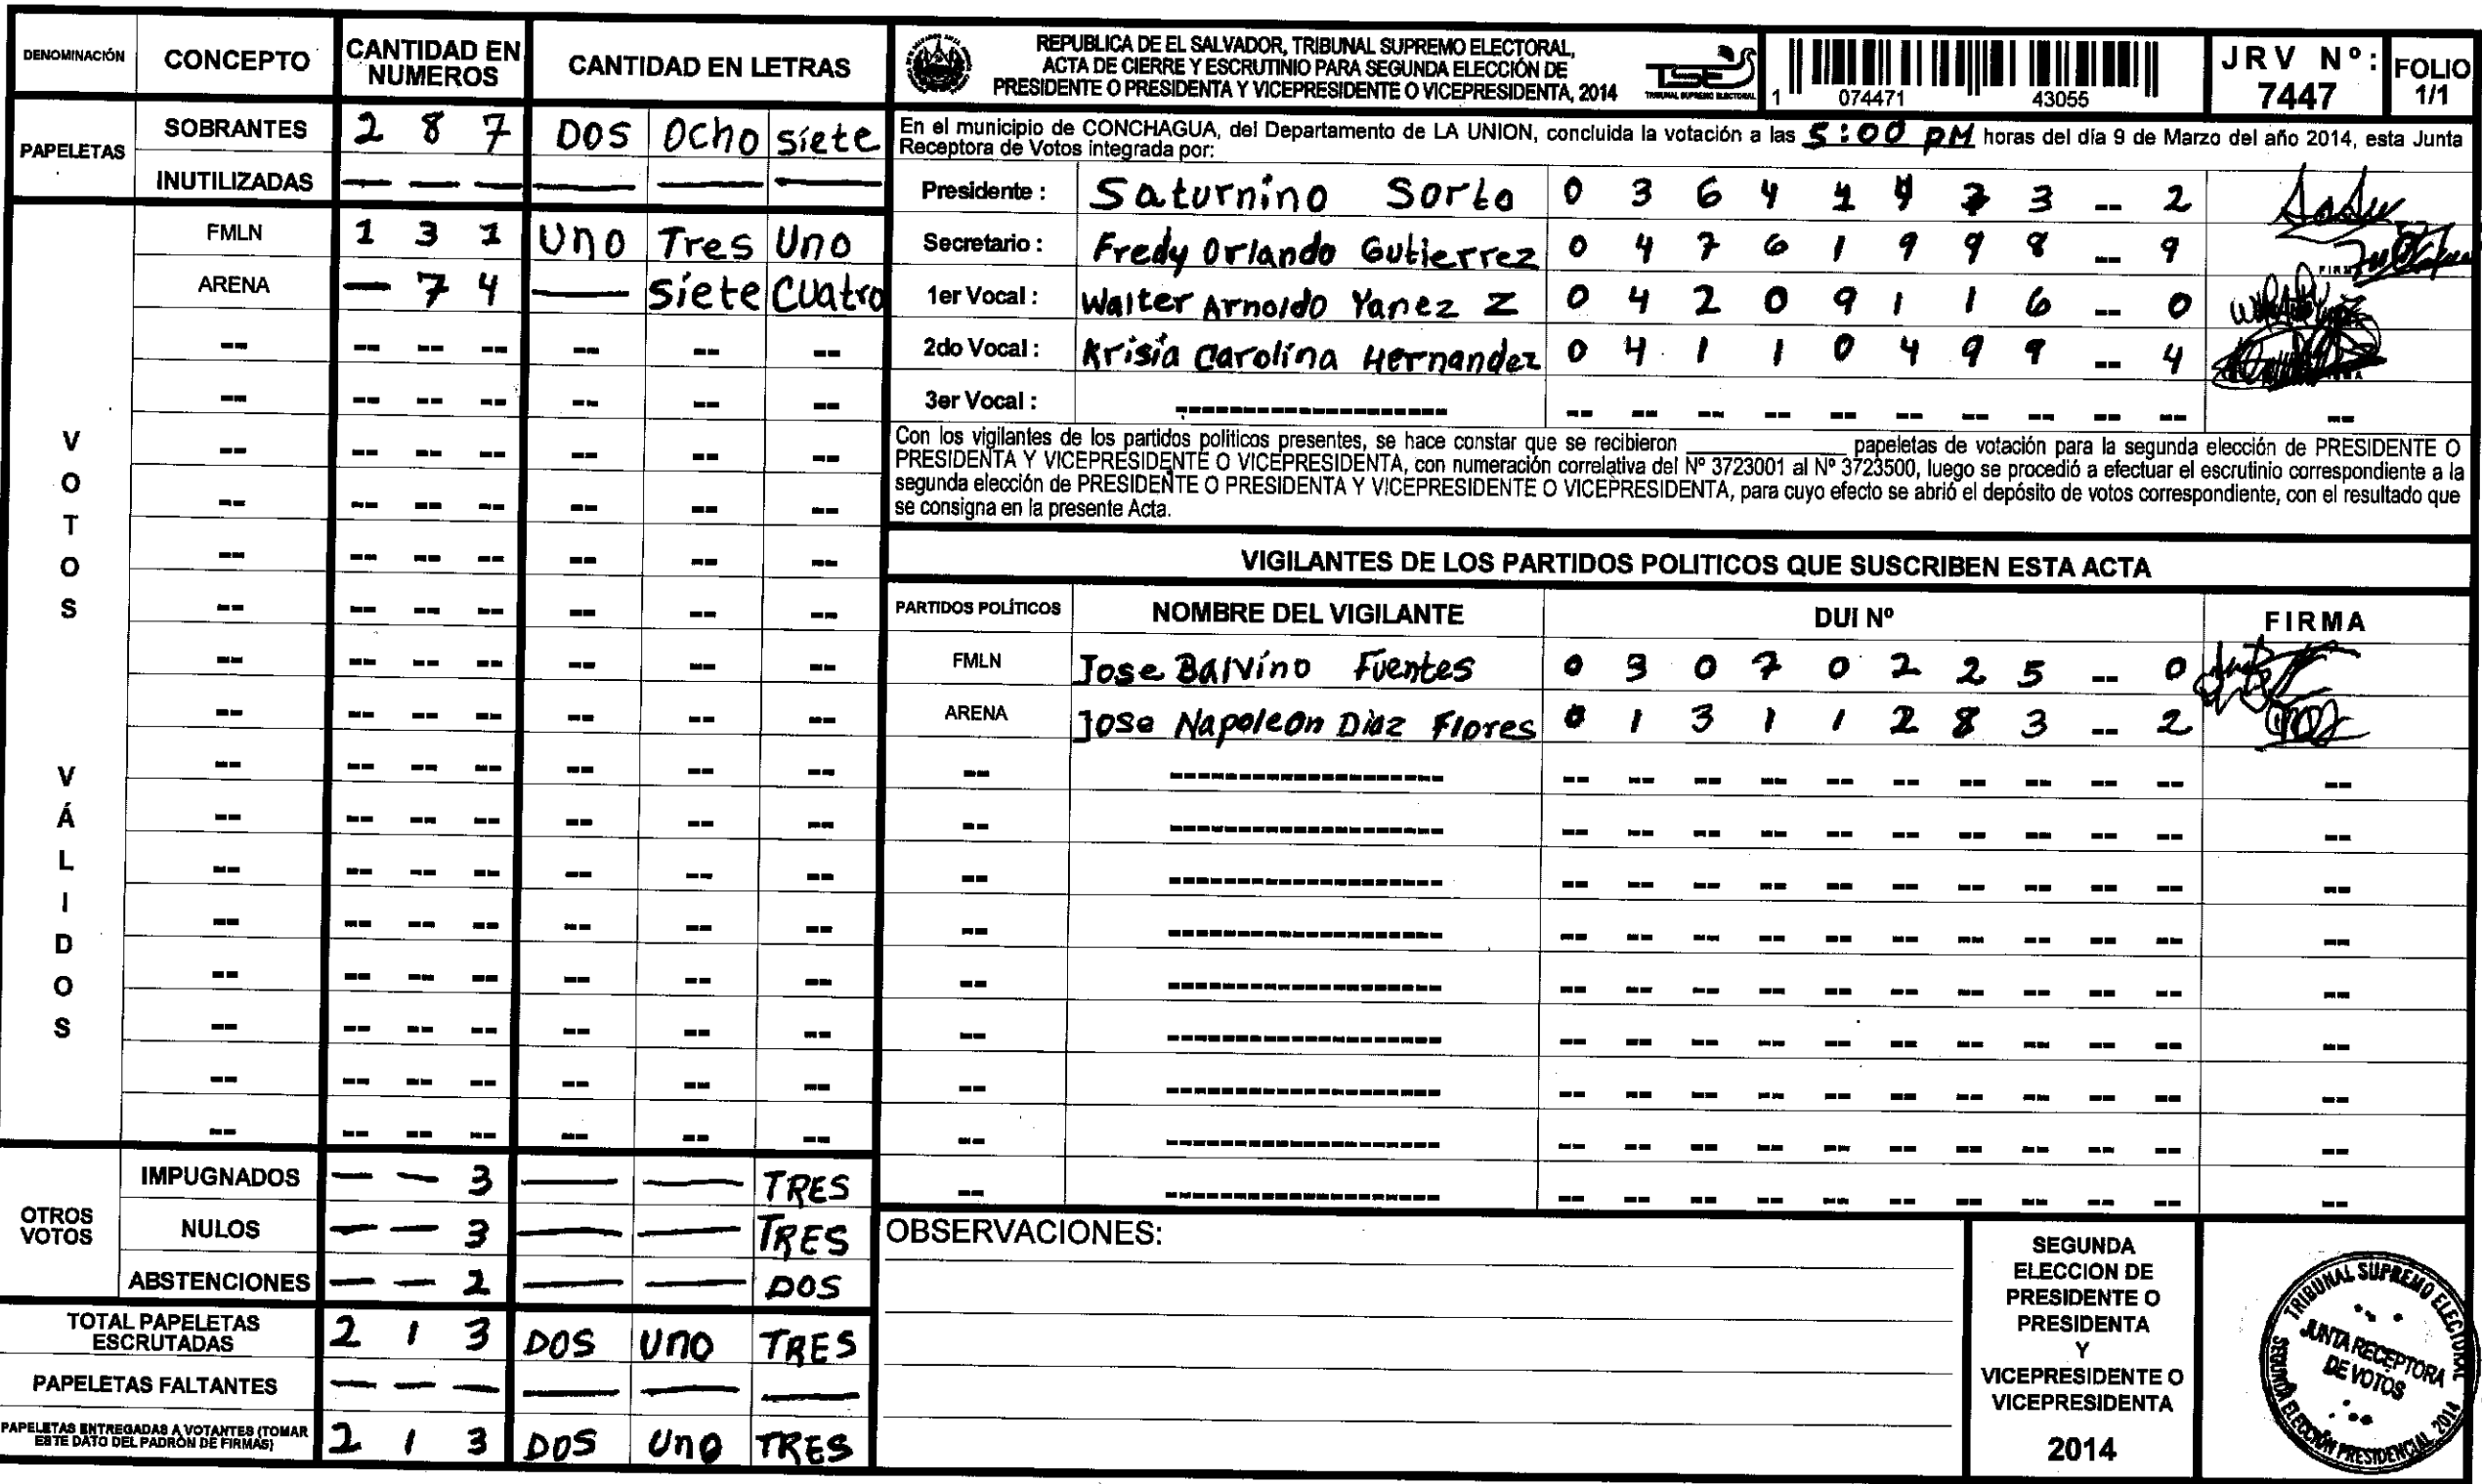 DENOMINACIÓN CONCEPTO CANTIDAD EN NUMEROS CANTIDAD EN LETRAS
PAPELETAS
SOBRANTES 2 8 7 DOS Ocho siete
INUTILIZADAS — — — — — —
VOTOS VÁLIDOS
FMLN 1 3 1 Uno Tres Uno
ARENA — 7 4 — siete Cuatro
OTROS VOTOS
IMPUGNADOS — — 3 — — TRES
NULOS — — 3 — — TRES
ABSTENCIONES — — 2 — — DOS
TOTAL PAPELETAS ESCRUTADAS 2 1 3 DOS UNO TRES
PAPELETAS FALTANTES — — — — — —
PAPELETAS ENTREGADAS A VOTANTES (TOMAR ESTE DATO DEL PADRÓN DE FIRMAS) 2 1 3 DOS UNO TRES
REPUBLICA DE EL SALVADOR, TRIBUNAL SUPREMO ELECTORAL,
ACTA DE CIERRE Y ESCRUTINIO PARA SEGUNDA ELECCIÓN DE
PRESIDENTE O PRESIDENTA Y VICEPRESIDENTE O VICEPRESIDENTA, 2014
TSE
TRIBUNAL SUPREMO ELECTORAL
1 074471 43055
JRV Nº: 7447
FOLIO 1/1
En el municipio de CONCHAGUA, del Departamento de LA UNION, concluida la votación a las 5:00 PM horas del día 9 de Marzo del año 2014, esta Junta
Receptora de Votos integrada por:
Presidente : Saturnino Sorto 0 3 6 4 1 4 7 3 -- 2
Secretario : Fredy Orlando Gutierrez 0 4 7 6 1 9 9 8 -- 9
1er Vocal : Walter Arnoldo Yanez Z 0 4 2 0 9 1 1 6 -- 0
2do Vocal : Krisia Carolina Hernandez 0 4 1 1 0 4 9 9 -- 4
3er Vocal :
Con los vigilantes de los partidos politicos presentes, se hace constar que se recibieron ____ papeletas de votación para la segunda elección de PRESIDENTE O
PRESIDENTA Y VICEPRESIDENTE O VICEPRESIDENTA, con numeración correlativa del Nº 3723001 al Nº 3723500, luego se procedió a efectuar el escrutinio correspondiente a la
segunda elección de PRESIDENTE O PRESIDENTA Y VICEPRESIDENTE O VICEPRESIDENTA, para cuyo efecto se abrió el depósito de votos correspondiente, con el resultado que
se consigna en la presente Acta.
VIGILANTES DE LOS PARTIDOS POLITICOS QUE SUSCRIBEN ESTA ACTA
PARTIDOS POLÍTICOS NOMBRE DEL VIGILANTE DUI Nº FIRMA
FMLN Jose Balvino Fuentes 0 3 0 7 0 2 2 5 -- 0
ARENA Jose Napoleon Diaz Flores 0 1 3 1 1 2 8 3 -- 2
OBSERVACIONES:
SEGUNDA
ELECCION DE
PRESIDENTE O
PRESIDENTA
Y
VICEPRESIDENTE O
VICEPRESIDENTA
2014
TRIBUNAL SUPREMO ELECTORAL
JUNTA RECEPTORA
DE VOTOS
SEGUNDA ELECCIÓN PRESIDENCIAL 2014